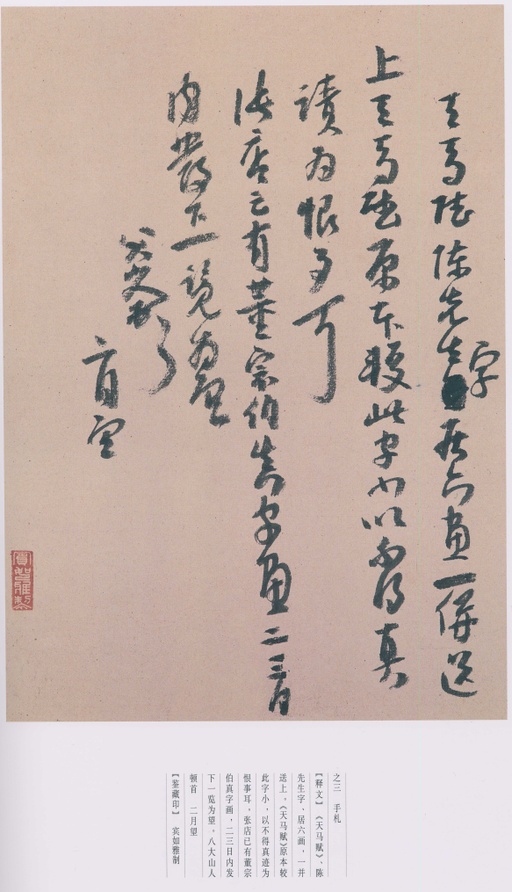 天馬賦陳先生字居六畫一併送
上天馬賦原本較此字小以不得真
蹟為恨事耳
張店已有董宗伯真字畫二三日
内發下一覽為望
八大山人
二月望
之三 手札
【释文】 《天马赋》、陈
先生字,居六画,一并
送上。《天马赋》原本较
此字小,以不得真迹为
恨事耳,张店已有董宗
伯真字画,二三日内发
下一览为望,八大山人
顿首 二月望
【鉴藏印】 宾如雅制